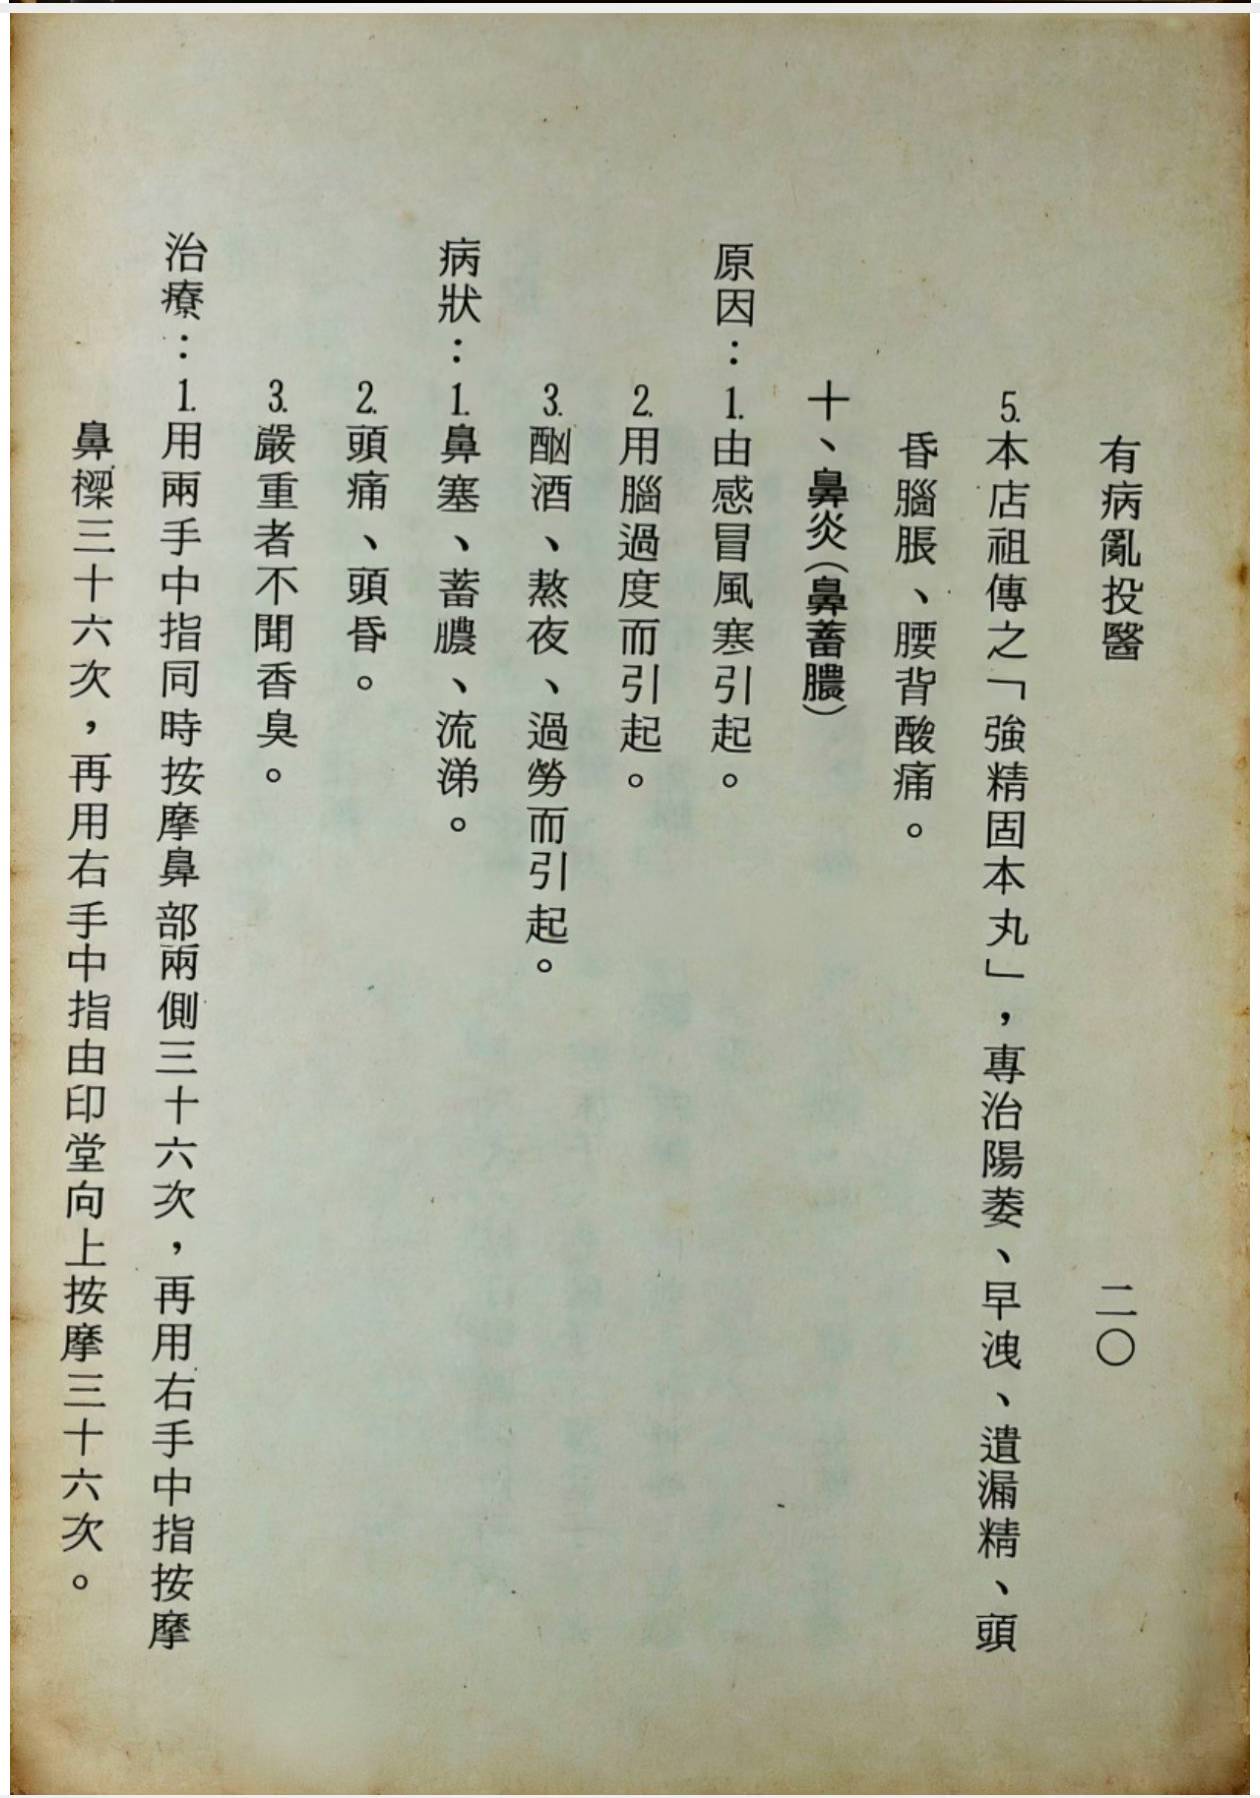 有病亂投醫　二〇
5.本店祖傳之「強精固本丸」，專治陽萎、早洩、遺漏精、頭
昏腦脹、腰背酸痛。
十、鼻炎（鼻蓄膿）
原因：1.由感冒風寒引起。
2.用腦過度而引起。
3.酗酒、熬夜、過勞而引起。
病狀：1.鼻塞、蓄膿、流涕。
2.頭痛、頭昏。
3.嚴重者不聞香臭。
治療：1.用兩手中指同時按摩鼻部兩側三十六次，再用右手中指按摩
鼻樑三十六次，再用右手中指由印堂向上按摩三十六次。